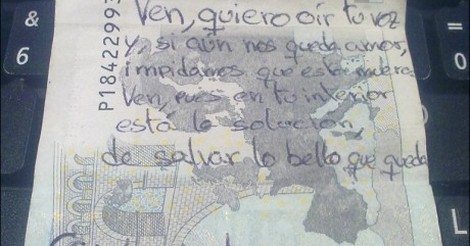 & 6
= 0
L
P18422993
Ven, quiero oir tu voz
y, si aún nos queda amor,
impidamos que esto muera.
Ven, pues en tu interior
está la solución,
de salvar lo bello que queda